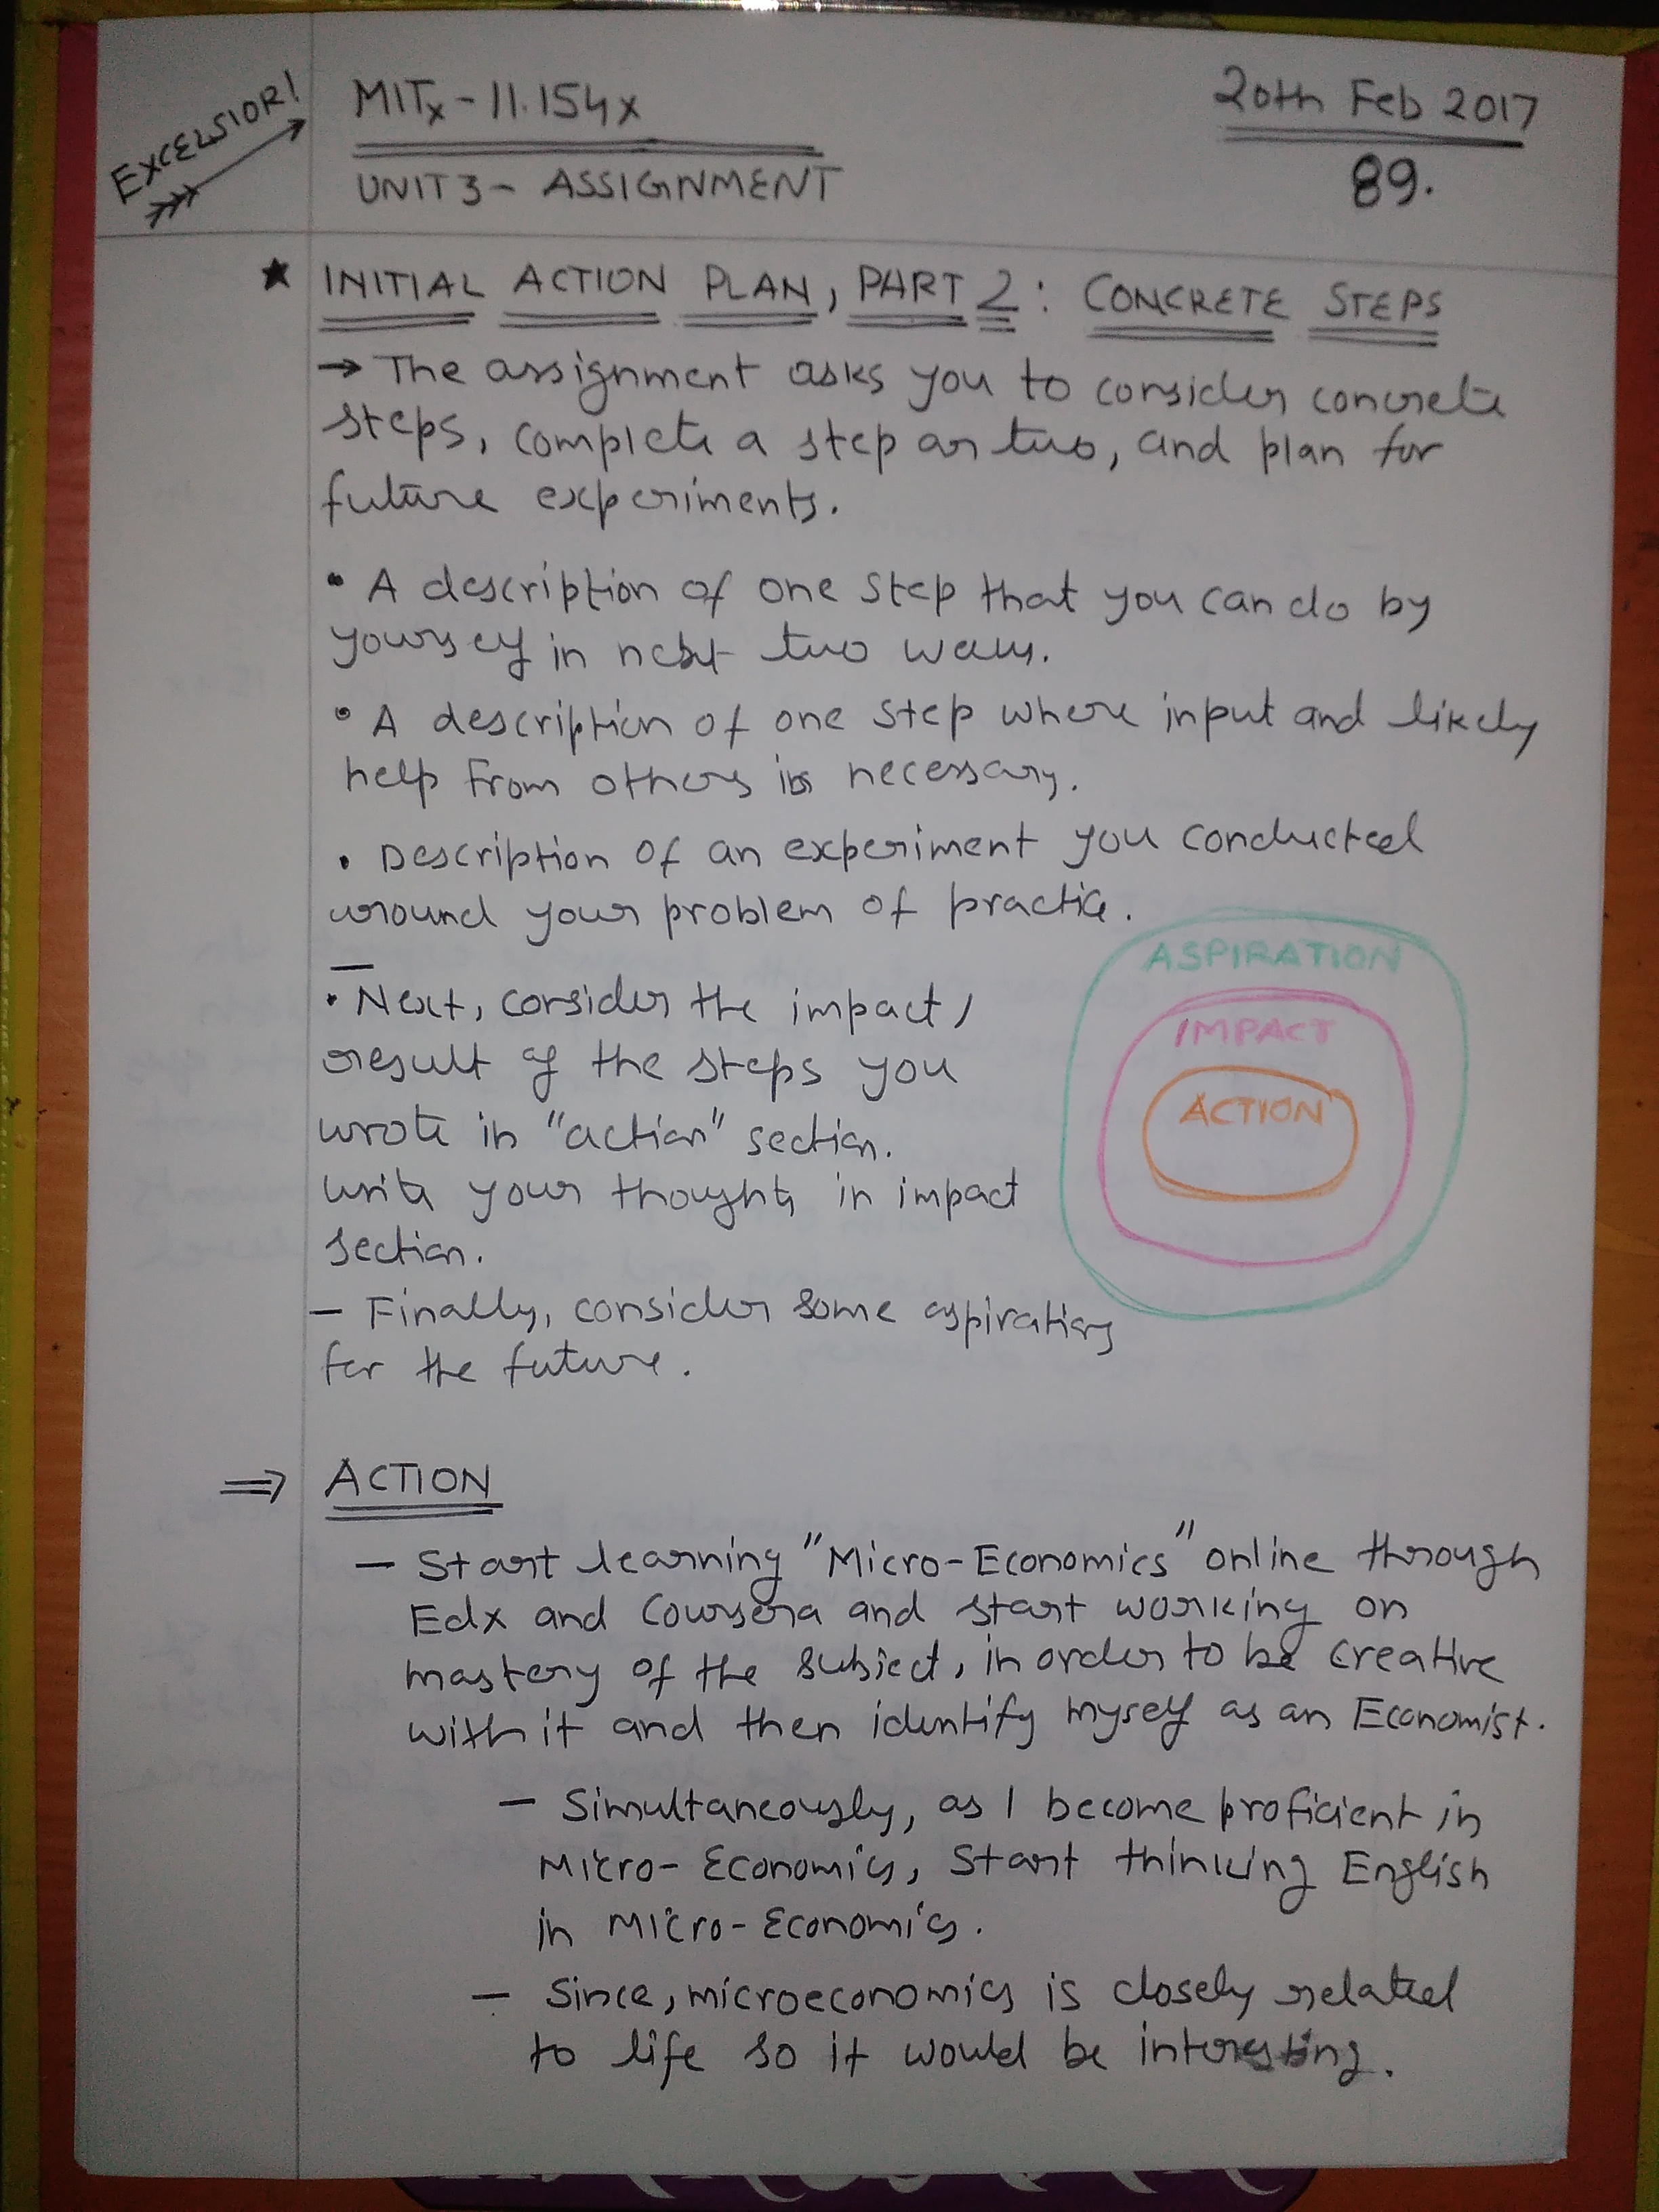 EXCELSIOR!
MITx - 11.154x
20th Feb 2017
UNIT 3 - ASSIGNMENT
89.
★ INITIAL ACTION PLAN, PART 2: CONCRETE STEPS
→ The assignment asks you to consider concrete
steps, complete a step or two, and plan for
future experiments.
• A description of one step that you can do by
yourself in next two weeks.
• A description of one step where input and likely
help from others is necessary.
• Description of an experiment you conducted
around your problem of practice.
• Next, consider the impact/
result of the steps you
wrote in "action" section.
write your thoughts in impact
section.
ASPIRATION
IMPACT
ACTION
— Finally, consider some aspirations
for the future.
⇒ ACTION
— Start learning "Micro-Economics" online through
Edx and Coursera and start working on
mastery of the subject, in order to be creative
with it and then identify myself as an Economist.
— Simultaneously, as I become proficient in
Micro-Economics, start thinking English
in Micro-Economics.
— Since, microeconomics is closely related
to life so it would be interesting.